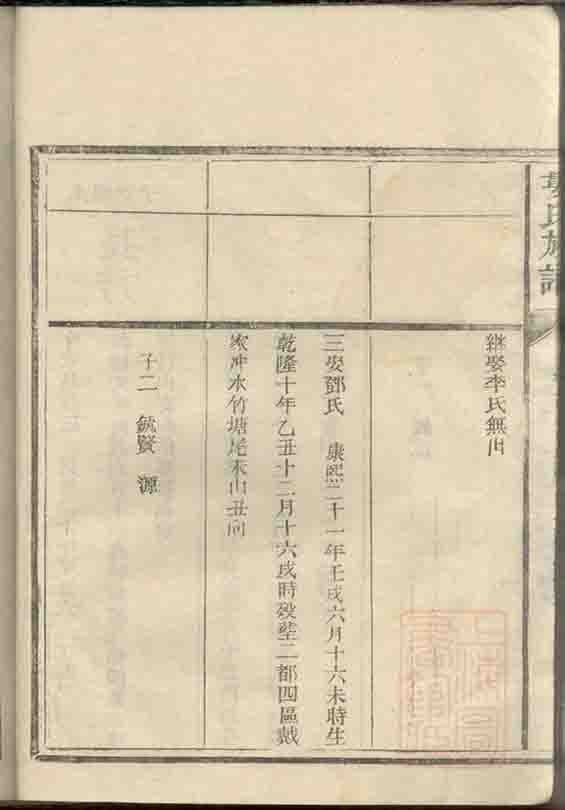 氏族譜
繼娶李氏無出
三娶鄧氏 康熙二十一年壬戌六月十六未時生
乾隆十年乙丑十二月十六戌時歿塟二都四區戴
家冲水竹塘尾未山丑向
子二 毓賢 源